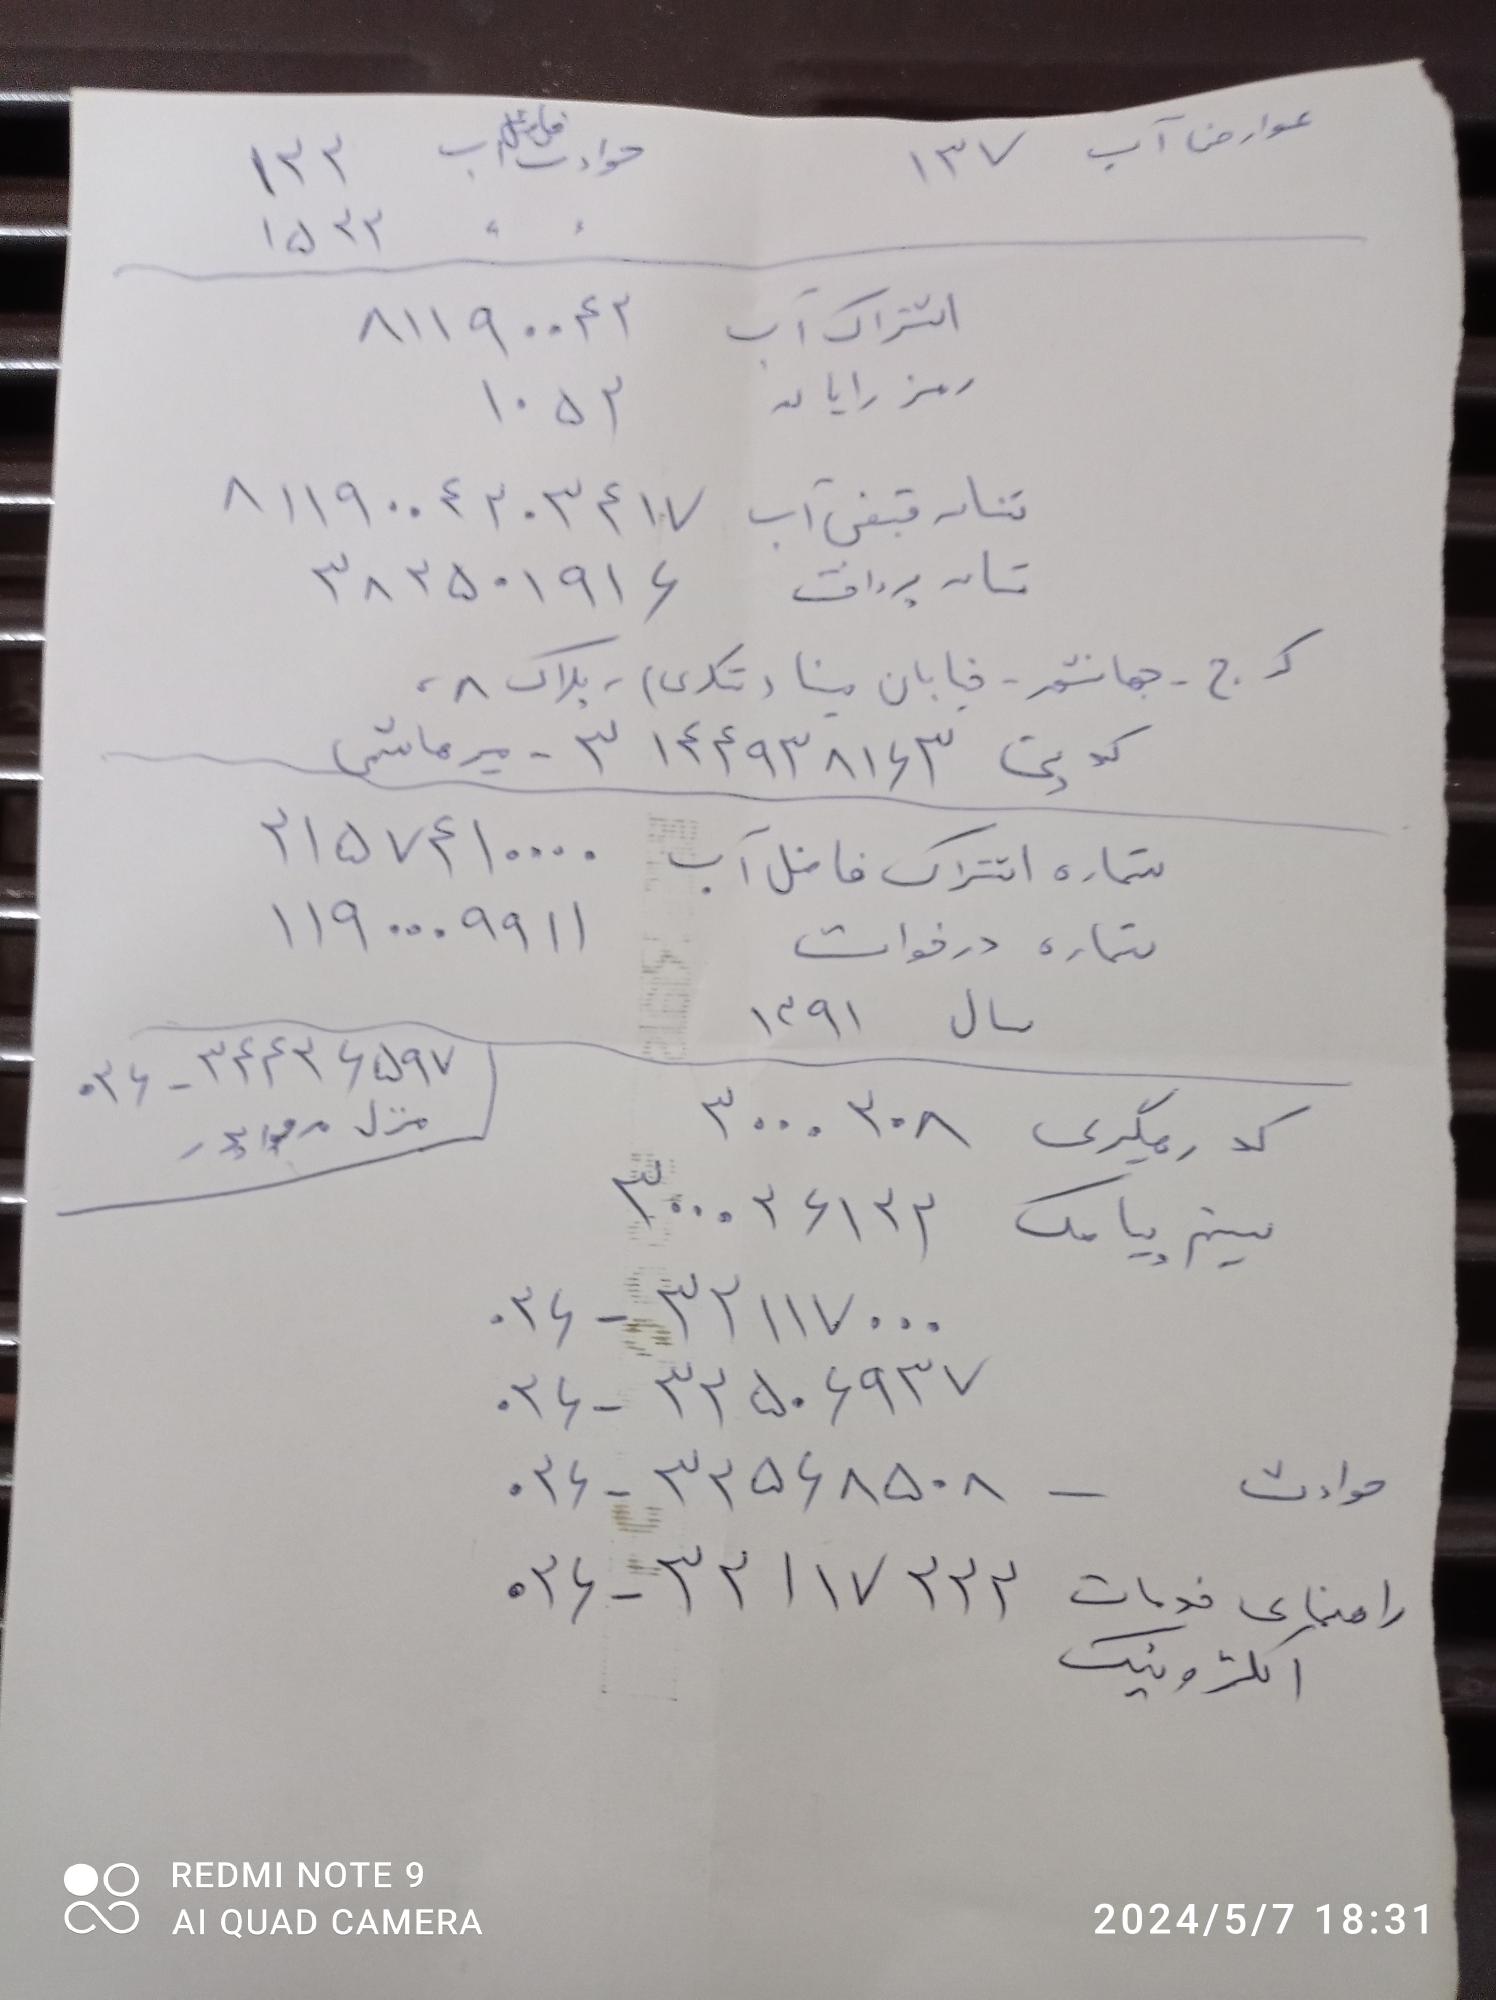 عوارض آب ۱۳۷
حوادث فاضل آب ۱۲۲
" " ۱۵۲۲
اشتراک آب ۸۱۱۹۰۰۴۲
رمز رایانه ۱۰۵۲
شناسه قبض آب ۸۱۱۹۰۰۴۲۰۳۴۱۷
شناسه پرداخت ۳۸۲۵۰۱۹۱۶
کرج - جهانشهر - خیابان مینا (تنکدی) - پلاک ۸
کد پستی ۳۱۴۴۹۳۸۱۶۳ - میرهاشمی
شماره اشتراک فاضل آب ۲۱۵۷۴۱۰۰۰۰
شماره درخواست ۱۱۹۰۰۰۹۹۱۱
سال ۱۳۹۱
۰۲۶-۳۴۴۲۶۵۹۷
منزل
کد رهگیری ۳۰۰۰۲۰۸
سیستم پیامک ۳۰۰۰۲۶۱۲۲
۰۲۶-۳۲۱۱۷۰۰۰
۰۲۶-۳۲۵۰۶۹۳۷
حوادث - ۰۲۶-۳۲۵۶۸۵۰۸
راهنمای خدمات ۰۲۶-۳۲۱۱۷۲۲۲
الکترونیک
REDMI NOTE 9
AI QUAD CAMERA
2024/5/7 18:31